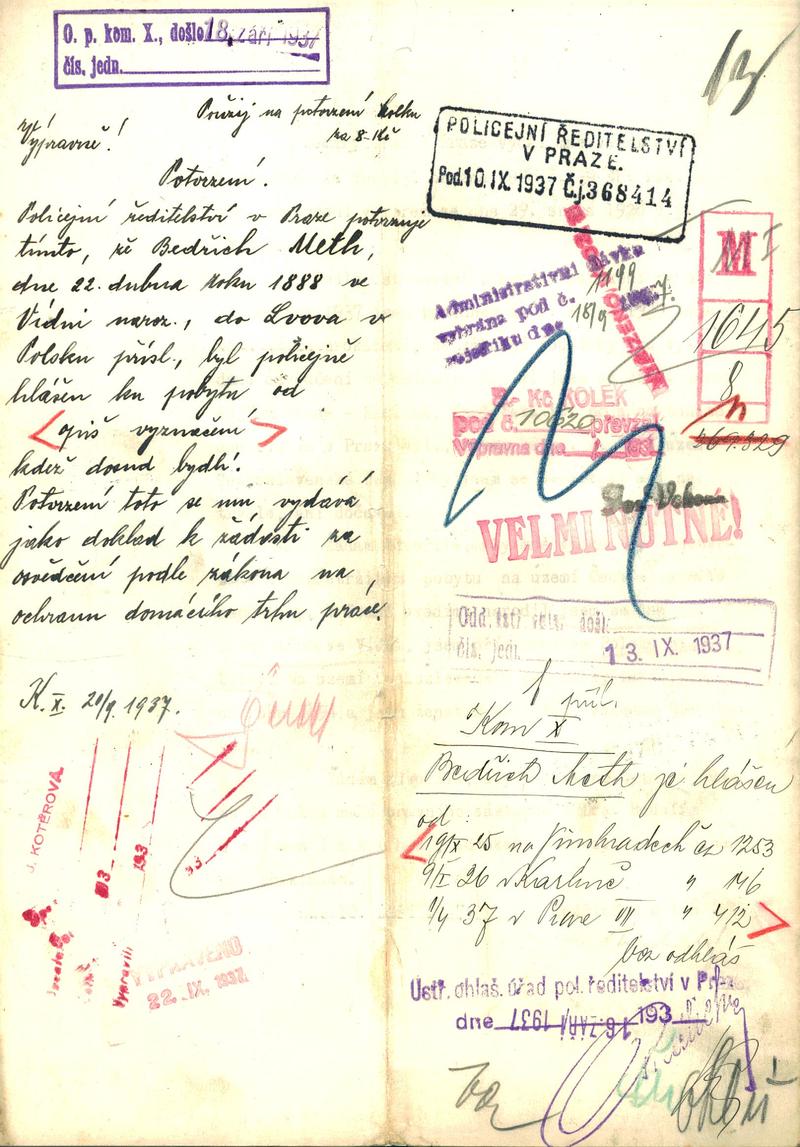 O. p. kom. X., došlo 18. září 1937
čís. jedn.
13
Výpravně!
Použij na potvrzení kolku
za 8 Kč
Potvrzení.
Policejní ředitelství v Praze potvrzuje
tímto, že Bedřich Meth,
dne 22. dubna roku 1888 ve
Vídni naroz., do Lvova v
Polsku přísl., byl policejně
hlášen ku pobytu od
opiš vyznačení
kdež dosud bydlí.
Potvrzení toto se mu vydává
jako doklad k žádosti za
osvědčení podle zákona na
ochranu domácího trhu práce.
K. X. 20/9. 1937.
J. KOTĚROVÁ
193
Vypravil:
VYPRAVENO
22. IX. 1937
POLICEJNÍ ŘEDITELSTVÍ
V PRAZE.
Pod. 10. IX. 1937 Č.j. 368414
Administrativní dávka
vybrána pod č. 1199
18/9
M I
1645
8
5.- Kč KOLEK
pod č. 10620 převzal
Výpravna dne
VELMI NUTNÉ!
13. IX. 1937
čís. jedn.
1 příl.
Kom X
Bedřich Meth je hlášen
od
19/X 25 na Vinohradech čp 1253
9/I 26 v Karlíně " 146
1/4 37 v Praze VII " 412
bez odhláš
Ustř. ohlaš. úřad pol. ředitelství v Praze
dne 16. ZÁŘÍ 1937 193